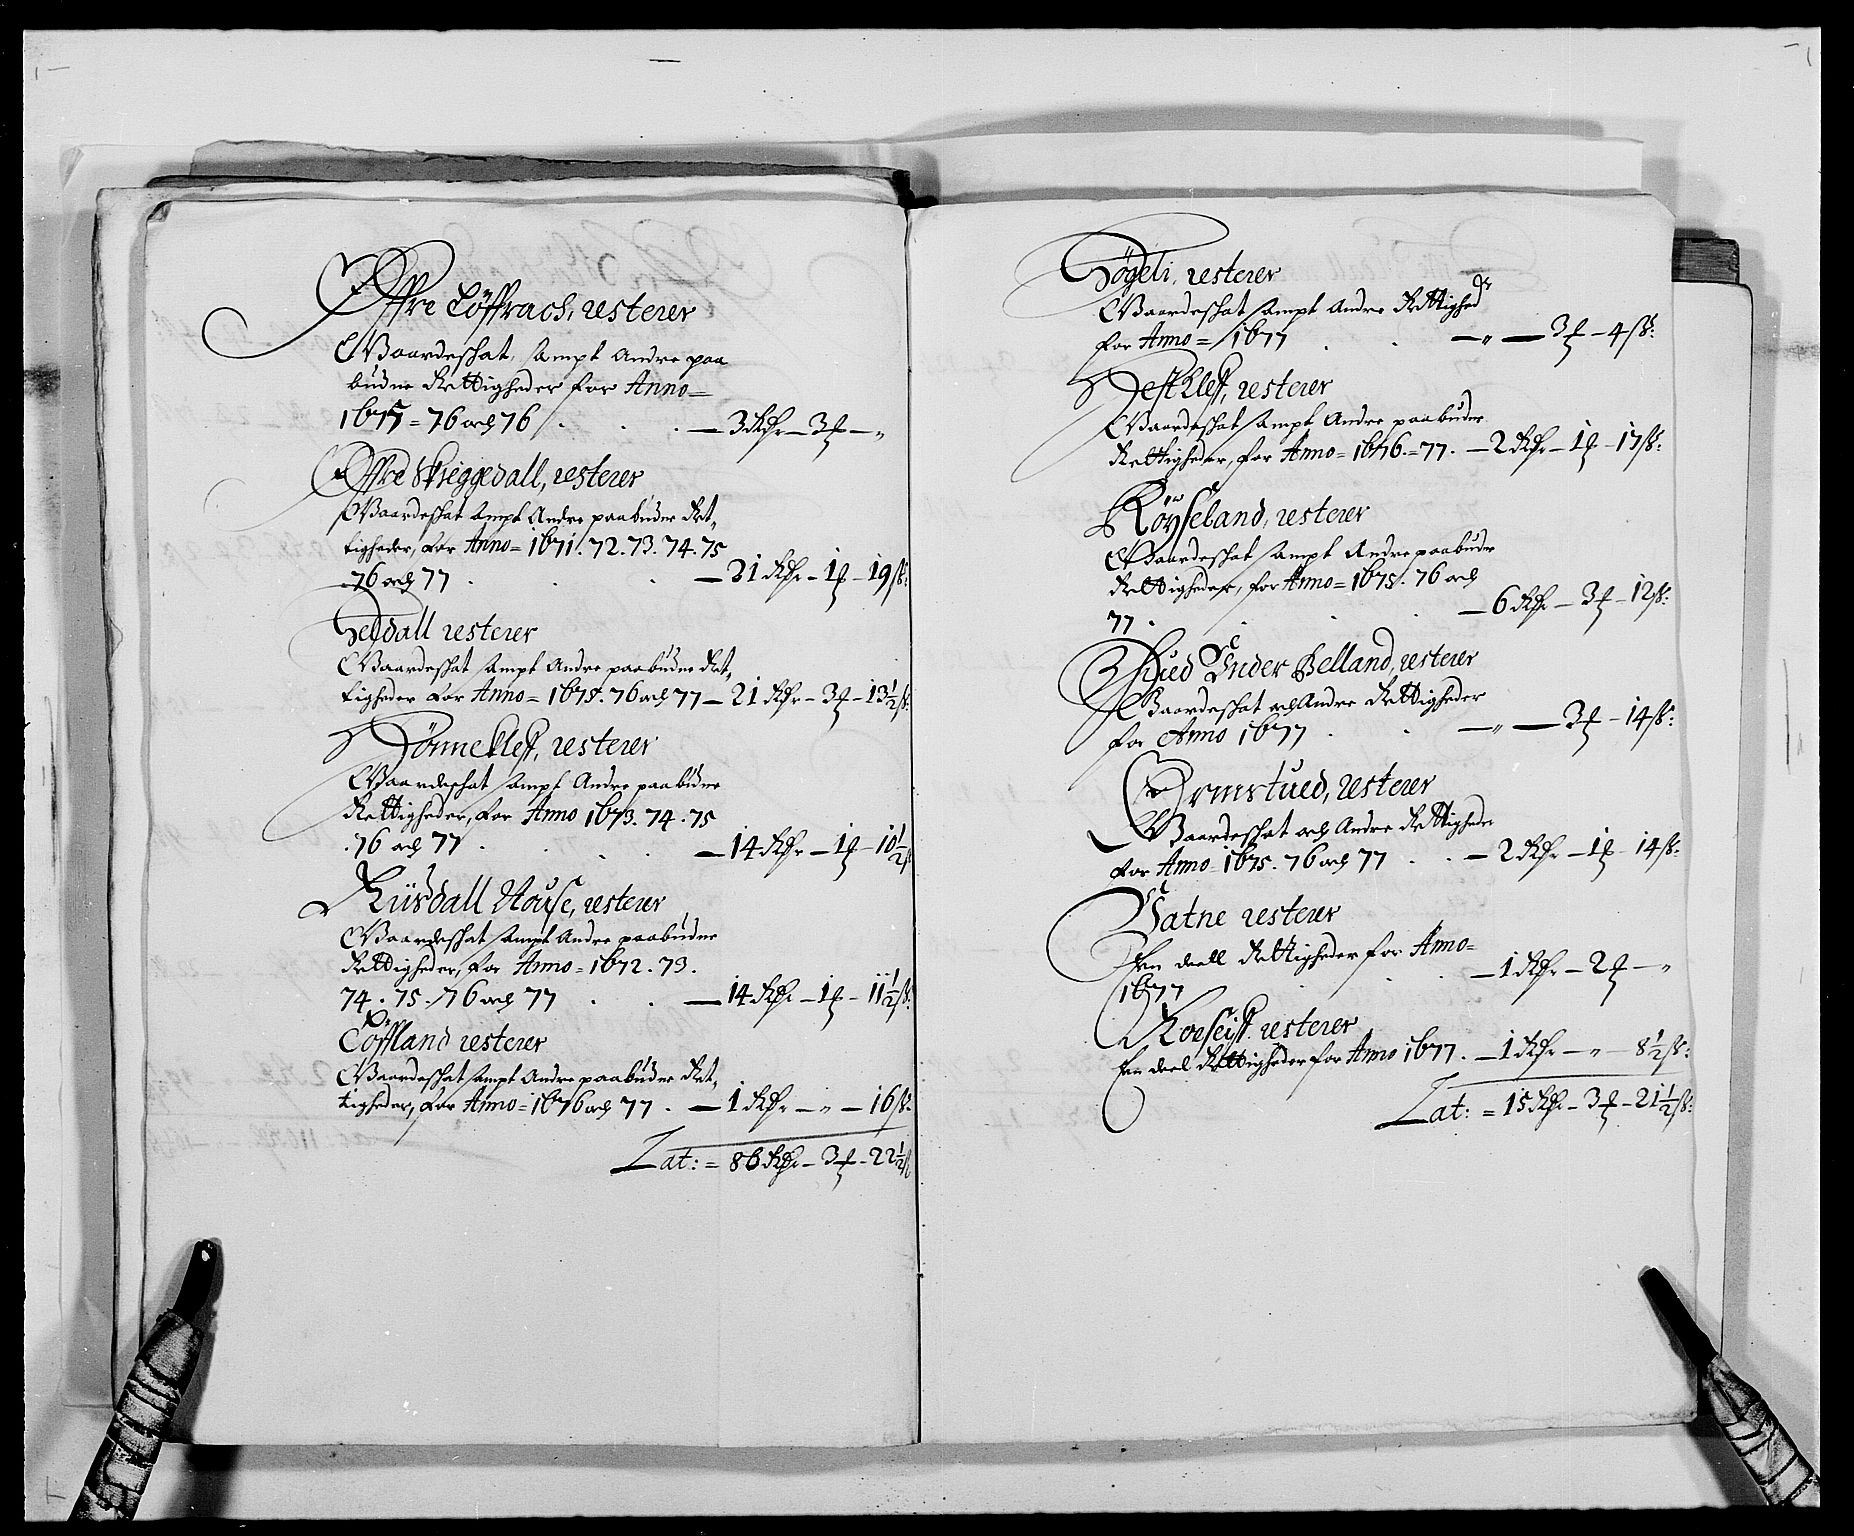 Øffre Löffrach, resterer
Gaardeschat, sampt Andre paa
budne Rettigheder for Anno=
1675 = 76 och 76 . . . — 3 Rdr — 3 ₰ — „
Øffre Skreggedall, resterer
Gaardeschat sampt Andre paabudne Ret„
tigheder, for Anno= 1671. 72. 73. 74. 75
76 och 77 . . . — 31 Rdr — 1 ₰ — 19 ß:
Seldall resterer
Gaardeschat sampt Andre paabudne Ret„
tigheder for Anno= 1675. 76 och 77 — 21 Rdr — 3 ₰ — 13½ ß:
Hönnekleff, resterer
Gaardeschat sampt Andre paabudne
Rettigheder, for Anno 1673. 74. 75
. 76 och 77 . . . — 14 Rdr — 1 ₰ — 10½ ß
Ruusdall House, resterer
Gaardeschat sampt Andre paabudne
Rettigheder, for Anno= 1672. 73.
74. 75. 76 och 77 . . — 14 Rdr — 1 ₰ — 11½ ß:
Löffland resterer
Gaardeschat sampt Andre paabudne Ret„
tigheder, for Anno= 1676 och 77 . — 1 Rdr — „ — 16 ß:
Lat: = 86 Rdr — 3 ₰ — 22½ ß
Högeli, resterer
Gaardeschat sampt Andre Rettighedr
for Anno= 1677 . . — „ — 3 ₰ — 4 ß:
Hestkleff, resterer
Gaardeschat sampt Andre paabudne
Rettigheder, for Anno= 1676.=77. — 2 Rdr — 1 ₰ — 17 ß:
Röyseland, resterer
Gaardeschat sampt Andre paabudne
Rettigheder, for Anno= 1675. 76 och
77 . . . — 6 Rdr — 3 ₰ — 12 ß:
Under Helland, resterer
Gaardeschat och Andre Rettigheder
for Anno 1677 . . — „ — 3 ₰ — 14 ß:
Ormstued, resterer
Gaardeschat och Andre Rettigheder
for Anno= 1675. 76 och 77 . . — 2 Rdr — 1 ₰ — 14 ß:
Vatne resterer
Een deell Rettigheder for Anno=
1677 . . — 1 Rdr — 2 ₰ — „
resterer
Een deel Rettigheder for Anno 1677. — 1 Rdr — „ — 8½ ß:
Lat: = 15 Rdr — 3 ₰ — 21½ ß: